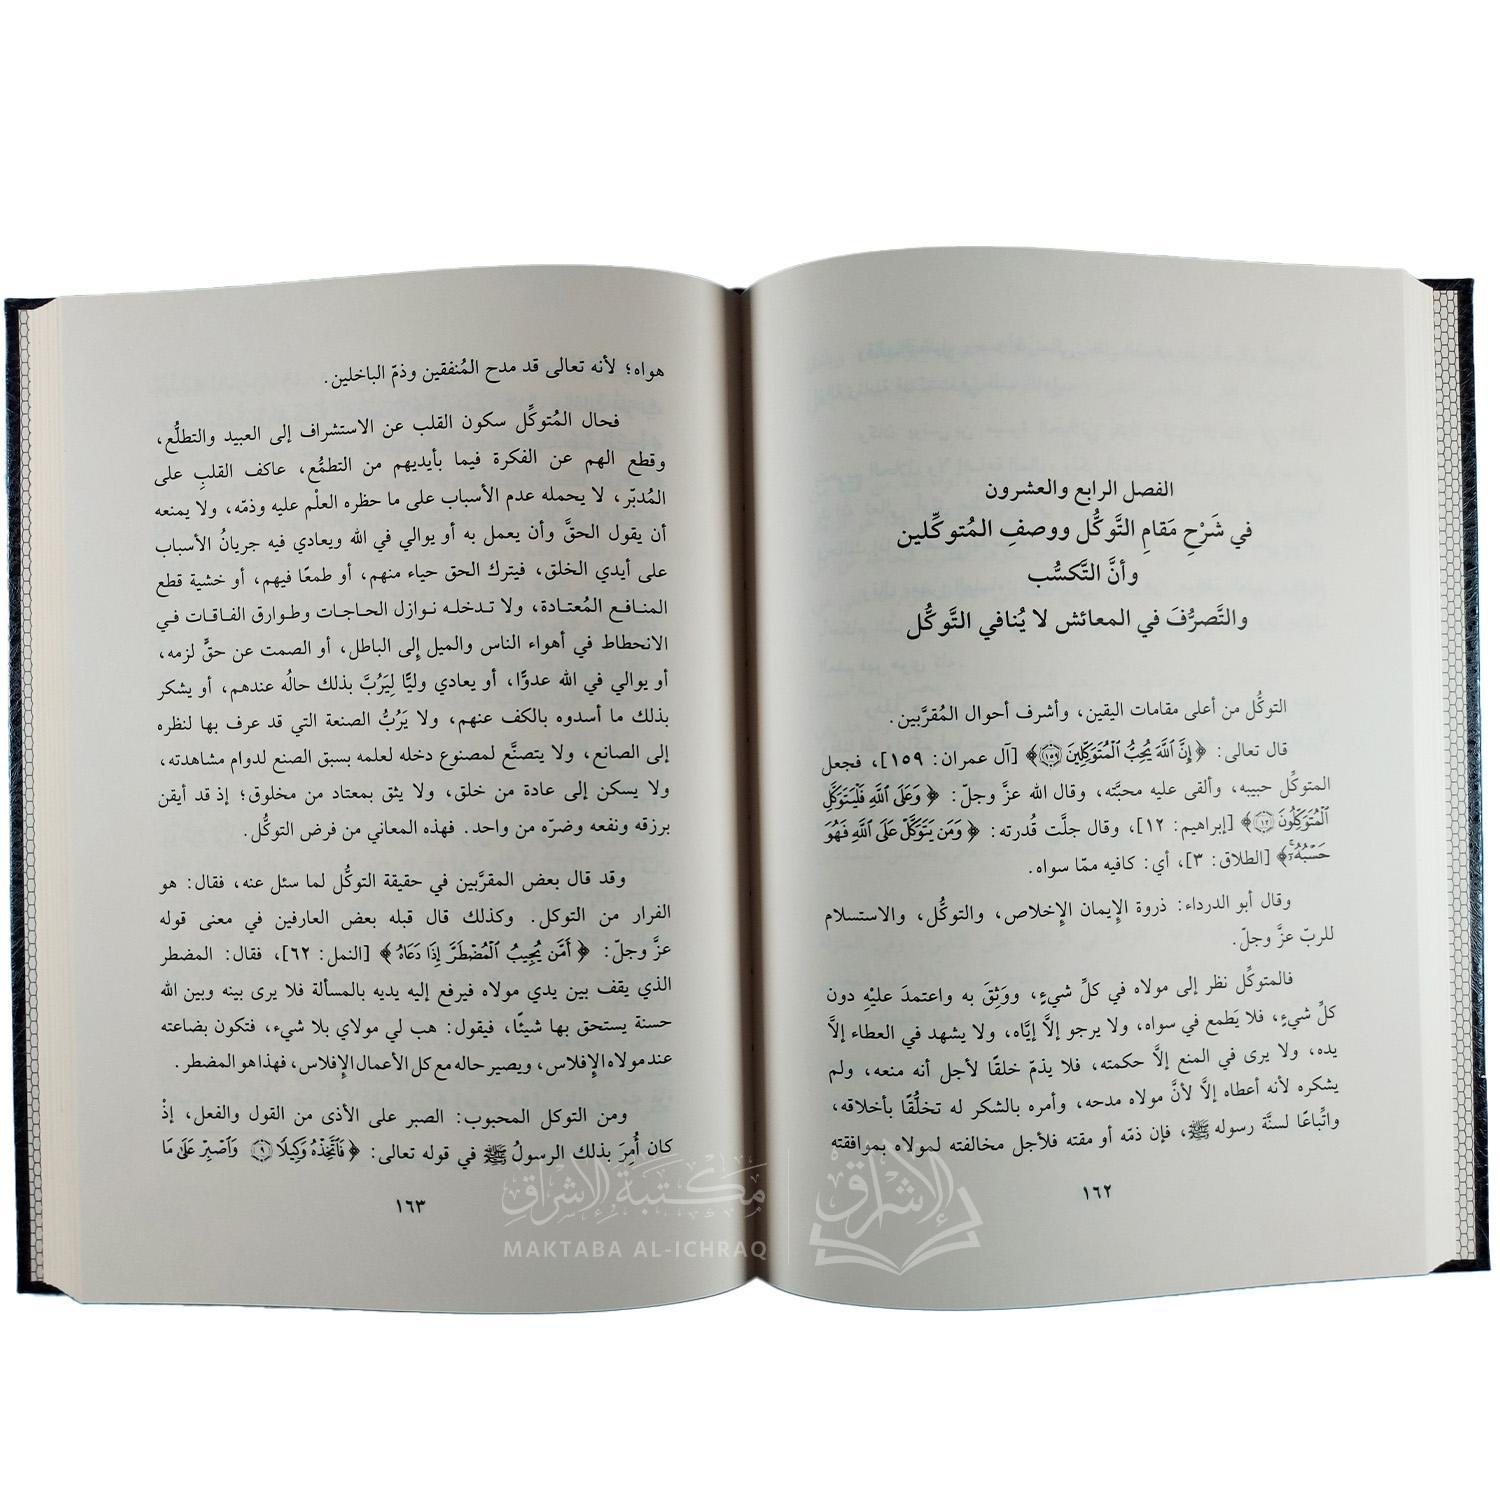 الفصل الرابع والعشرون
في شَرْحِ مَقامِ التَّوكُّل ووصفِ المُتوكِّلين
وأنَّ التَّكسُّب
والتَّصرُّفَ في المعائش لا يُنافي التَّوكُّل
التوكُّل من أعلى مقامات اليقين، وأشرف أحوال المُقرَّبين.
قال تعالى: ﴿إِنَّ ٱللَّهَ يُحِبُّ ٱلْمُتَوَكِّلِينَ ١٥٩﴾ [آل عمران: ١٥٩]، فجعل
المتوكِّل حبيبه، وألقى عليه محبَّته، وقال الله عزَّ وجلّ: ﴿وَعَلَى ٱللَّهِ فَلْيَتَوَكَّلِ
ٱلْمُتَوَكِّلُونَ ١٢﴾ [إبراهيم: ١٢]، وقال جلَّت قُدرته: ﴿وَمَن يَتَوَكَّلْ عَلَى ٱللَّهِ فَهُوَ
حَسْبُهُۥٓ﴾ [الطلاق: ٣]، أي: كافيه ممّا سواه.
وقال أبو الدرداء: ذروة الإيمان الإخلاص، والتوكُّل، والاستسلام
للربّ عزَّ وجلّ.
فالمتوكِّل نظر إلى مولاه في كلِّ شيءٍ، ووَثِقَ به واعتمدَ عليْهِ دون
كلِّ شيءٍ، فلا يَطمع في سواه، ولا يرجو إلَّا إيَّاه، ولا يشهد في العطاء إلَّا
يده، ولا يرى في المنع إلَّا حكمته، فلا يذمّ خلقًا لأجل أنه منعه، ولم
يشكره لأنه أعطاه إلَّا لأنَّ مولاه مدحه، وأمره بالشكر له تخلُّقًا بأخلاقه،
واتِّباعًا لسنَّة رسوله ﷺ، فإن ذمّه أو مقته فلأجل مخالفته لمولاه بموافقته
١٦٢
هواه؛ لأنه تعالى قد مدح المُنفقين وذمّ الباخلين.
فحال المُتوكِّل سكون القلب عن الاستشراف إلى العبيد والتطلُّع،
وقطع الهم عن الفكرة فيما بأيديهم من التطمُّع، عاكف القلبِ على
المُدبّر، لا يحمله عدم الأسباب على ما حظره العلْم عليه وذمّه، ولا يمنعه
أن يقول الحقَّ وأن يعمل به أو يوالي في الله ويعادي فيه جريانُ الأسباب
على أيدي الخلق، فيترك الحق حياء منهم، أو طمعًا فيهم، أو خشية قطع
المنافع المُعتادة، ولا تدخله نوازل الحاجات وطوارق الفاقات في
الانحطاط في أهواء الناس والميل إلى الباطل، أو الصمت عن حقٍّ لزمه،
أو يوالي في الله عدوًّا، أو يعادي وليًّا لِيَرُبَّ بذلك حالُه عندهم، أو يشكر
بذلك ما أسدوه بالكف عنهم، ولا يَرُبُّ الصنعة التي قد عرف بها لنظره
إلى الصانع، ولا يتصنَّع لمصنوع دخله لعلمه بسبق الصنع لدوام مشاهدته،
ولا يسكن إلى عادة من خلق، ولا يثق بمعتاد من مخلوق؛ إذ قد أيقن
برزقه ونفعه وضرّه من واحد. فهذه المعاني من فرض التوكُّل.
وقد قال بعض المقرَّبين في حقيقة التوكُّل لما سئل عنه، فقال: هو
الفرار من التوكل. وكذلك قال قبله بعض العارفين في معنى قوله
عزَّ وجلّ: ﴿أَمَّن يُجِيبُ ٱلْمُضْطَرَّ إِذَا دَعَاهُ﴾ [النمل: ٦٢]، فقال: المضطر
الذي يقف بين يدي مولاه فيرفع إليه يديه بالمسألة فلا يرى بينه وبين الله
حسنة يستحق بها شيئًا، فيقول: هب لي مولاي بلا شيء، فتكون بضاعته
عند مولاه الإفلاس، ويصير حاله مع كل الأعمال الإفلاس، فهذا هو المضطر.
ومن التوكل المحبوب: الصبر على الأذى من القول والفعل، إذْ
كان أُمِرَ بذلك الرسولُ ﷺ في قوله تعالى: ﴿فَٱتَّخِذْهُ وَكِيلًا ٩ وَٱصْبِرْ عَلَىٰ مَا
١٦٣
مكتبة الإشراق
MAKTABA AL-ICHRAQ
الإشراق